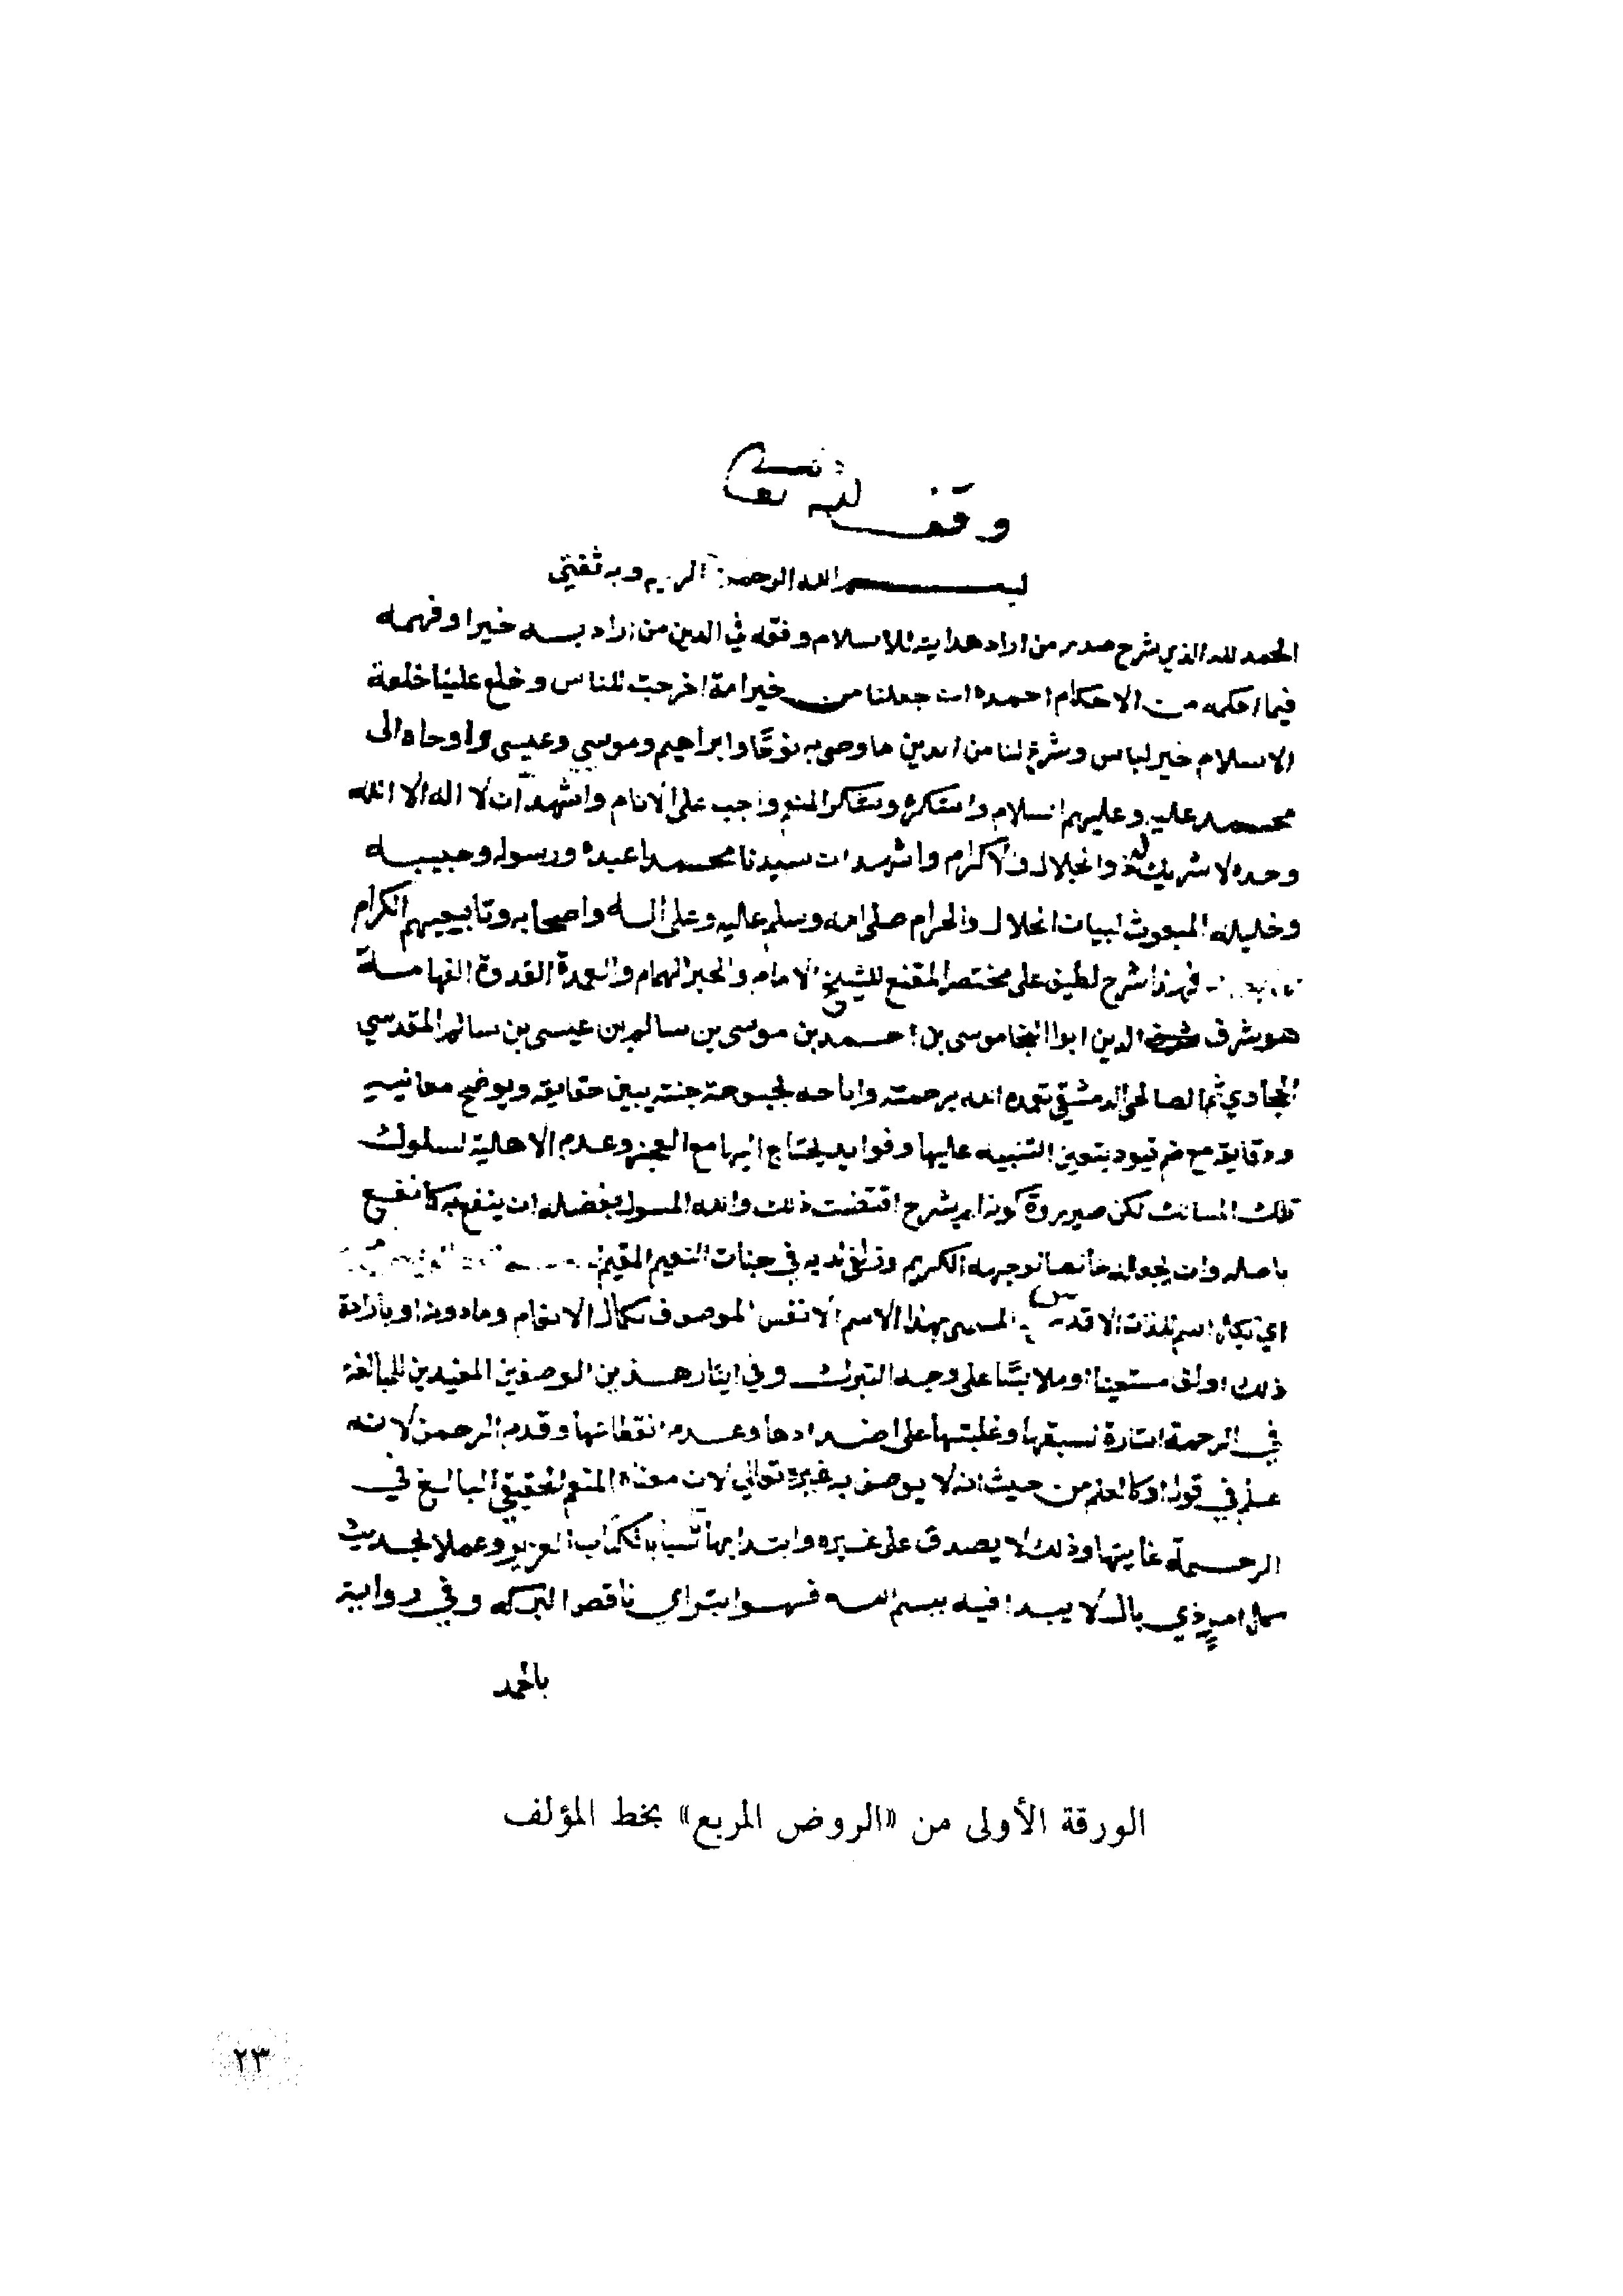 وقف لله تعالى
بسم الله الرحمن الرحيم وبه ثقتي
الحمد لله الذي شرح صدر من اراد هدايته للاسلام وفقه في الدين من اراد به خيرا وفهمه
فيما احكمه من الاحكام احمده ان جعلنا من خير امة اخرجت للناس وخلع علينا خلعة
الاسلام خير لباس وشرع لنا من الدين ما وصى به نوحًا وابراهيم وموسى وعيسى واوحاه الى
محمد عليه وعليهم السلام واشكره وشكر المنعم واجب على الانام واشهد أن لا اله الا الله
وحده لا شريك له ذو الجلال والاكرام واشهد ان سيدنا محمدا عبده ورسوله وحبيبه
وخليله المبعوث لبيان الحلال والحرام صلى الله وسلم عليه وعلى اله واصحابه وتابعيهم الكرام
فهذا شرح لطيف على مختصر المقنع للشيخ الامام والحبر الهمام والعمدة القدوة الفهامة
هو شرف الدين ابو النجا موسى بن احمد بن موسى بن سالم بن عيسى بن سالم المقدسي
الحجاوي ثم الصالحي الدمشقي تغمده الله برحمته واباحه بحبوحة جنته يبين حقايقه ويوضح معانيه
ودقايقه مع ضم قيود يتعين التنبيه عليها وفوايد يحتاج اليها مع العجز وعدم الاهلية لسلوك
تلك المسالك لكن ضرورة كونه لم يشرح اقتضت ذلك والله المسول بفضله ان ينفع به كما نفع
باصله وان يجعله خالصا لوجهه الكريم وزلفى لديه في جنات النعيم المقيم
اي بكل اسم للذات الاقدس المسمى بهذا الاسم الانفس الموصوف بكمال الانعام وما دونه او بارادة
ذلك اولف مستعينا او ملابسًا على وجه التبرك وفي ايثار هذين الوصفين المفيدين للمبالغة
في الرحمة اشارة لسبقها وغلبتها على اضدادها وعدم انقطاعها وقدم الرحمن لانه
علم في قول او كالعلم من حيث انه لا يوصف به غيره تعالى لان معناه المنعم الحقيقي البالغ في
الرحمة غايتها وذلك لا يصدق على غيره وابتدا بها تأسيا بالكتاب العزيز وعملا بحديث
كل امر ذي بال لا يبدا فيه ببسم الله فهو ابتر اي ناقص البركه وفي رواية
بالحمد
الورقة الأولى من «الروض المربع» بخط المؤلف
٢٣